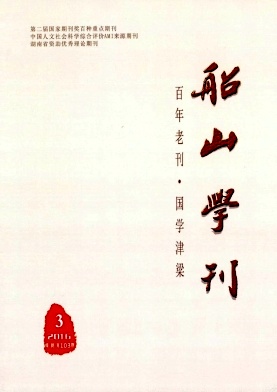 第二届国家期刊奖百种重点期刊
中国人文社会科学综合评价AMI来源期刊
湖南省资助优秀理论期刊
船山學刊
百年老刊·国学津梁
3
2016